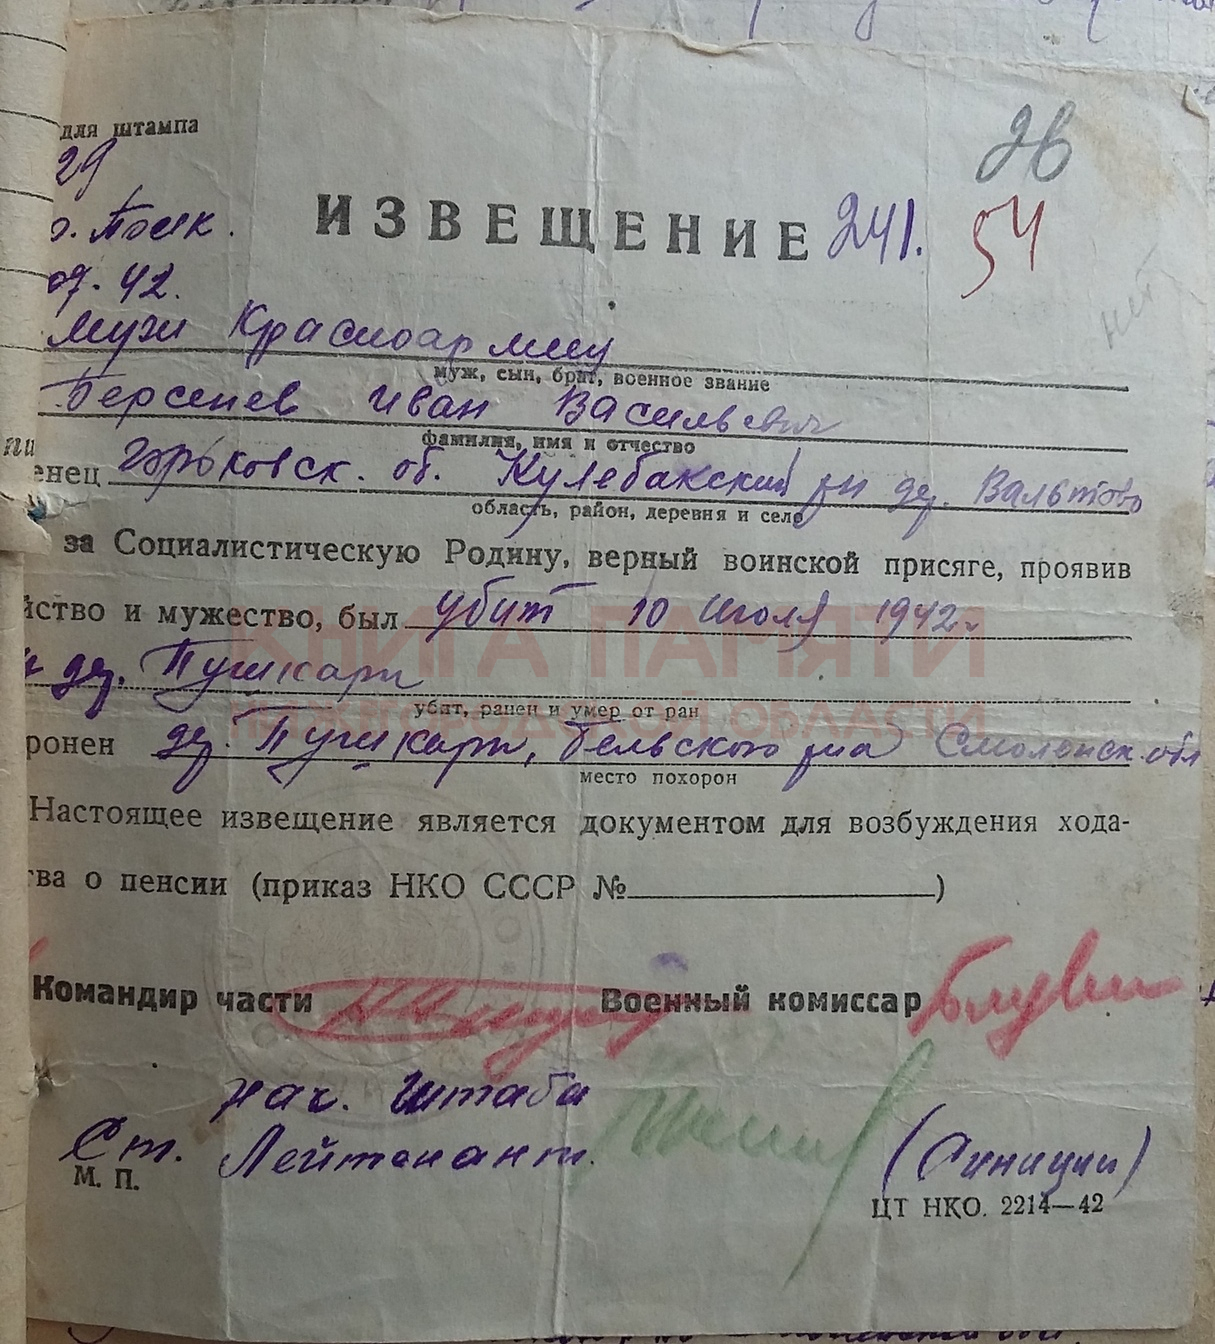 для штампа
29
26
ИЗВЕЩЕНИЕ 241. 54
07. 42.
нит
муж Красноармеец
муж, сын, брат, военное звание
Берсенев Иван Васильевич
фамилия, имя и отчество
енец Горьковск. об. Кулебакский рн дер. Вальтово
область, район, деревня и село
за Социалистическую Родину, верный воинской присяге, проявив
йство и мужество, был убит 10 июля 1942 г
дер. Пушкари
убит, ранен и умер от ран
ронен дер. Пушкари, Бельского р-на Смоленск. обл
место похорон
Настоящее извещение является документом для возбуждения хода-
тва о пенсии (приказ НКО СССР № )
Командир части Военный комиссар
Нач. Штаба
Ст. Лейтенант. (Синицин)
М. П.
ЦТ НКО. 2214—42
КНИГА ПАМЯТИ
НИЖЕГОРОДСКОЙ ОБЛАСТИ